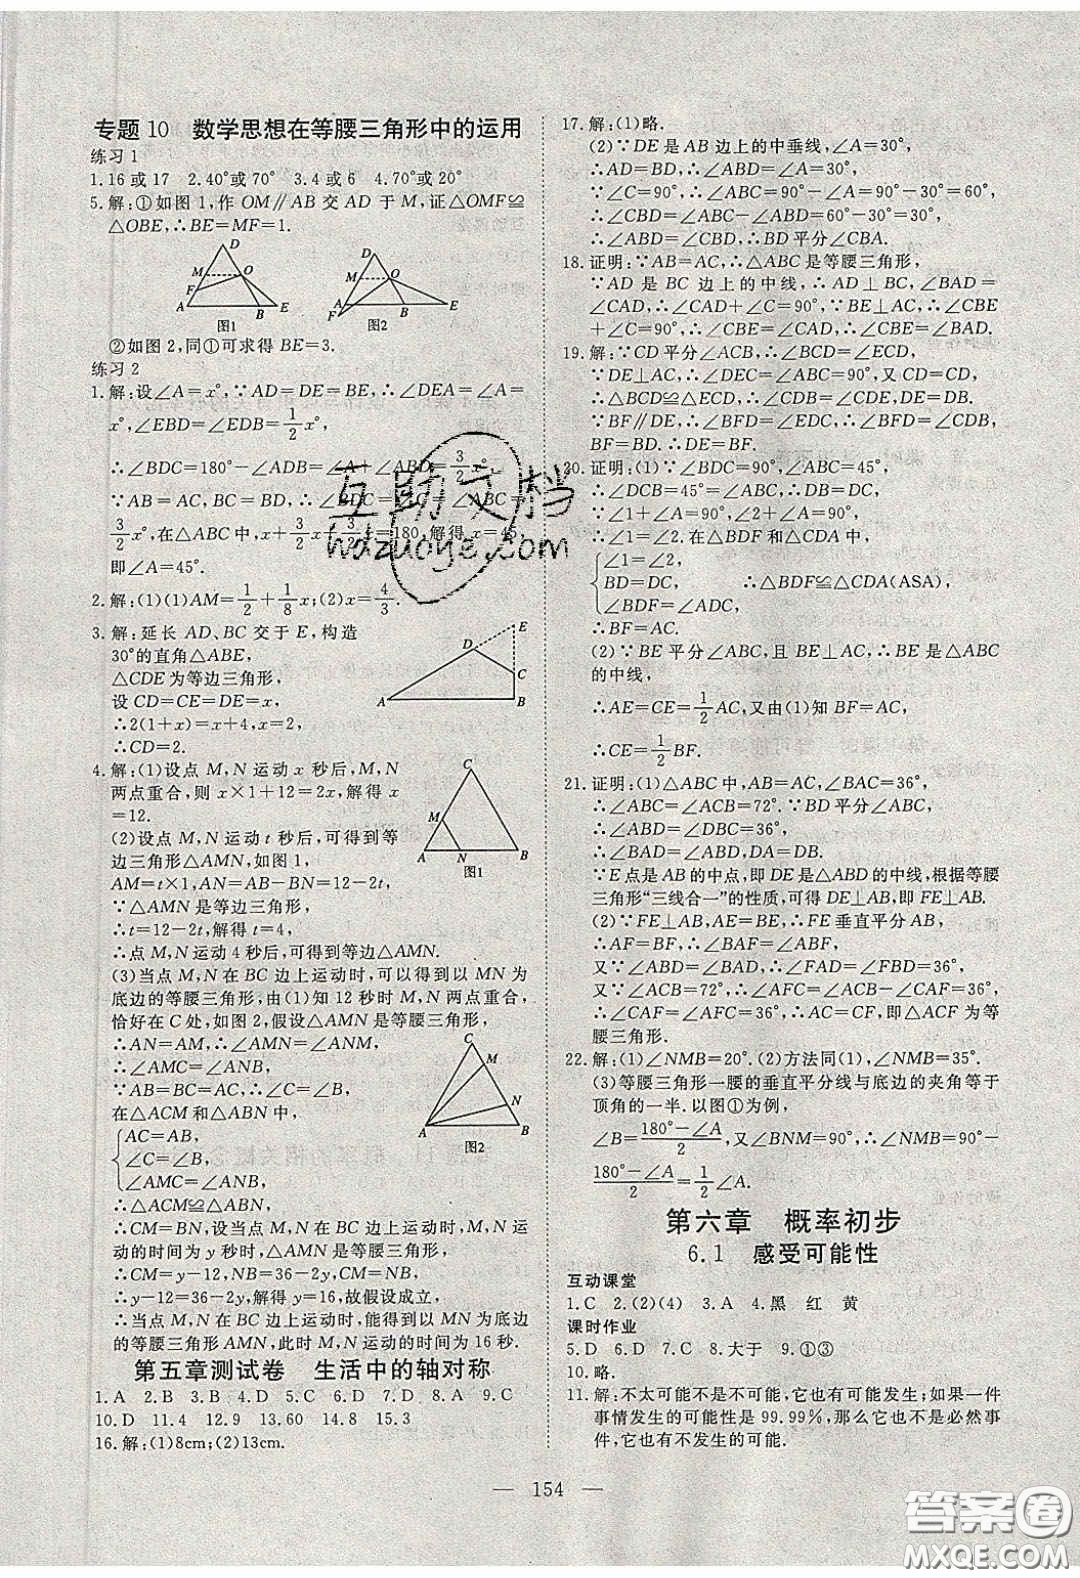 专题10 数学思想在等腰三角形中的运用
练习1
1.16或17 2.40°或70° 3.4或6 4.70°或20°
5.解:①如图1,作OM∥AB交AD于M,证△OMF≌
△OBE,∴BE=MF=1.
D
M
O
F
A
B
E
图1
D
M
O
A
F
B
E
图2
②如图2,同①可求得BE=3.
练习2
1.解:设∠A=x°,∵AD=DE=BE,∴∠DEA=∠A=
x°,∠EBD=∠EDB=1/2x°,
∴∠BDC=180°-∠ADB=∠A+∠ABD=3/2x°,
∵AB=AC,BC=BD,∴∠BDC=∠C=∠ABC=
3/2x°,在△ABC中,x+3/2x+3/2x=180,解得x=45,
即∠A=45°.
2.解:(1)(1)AM=1/2+1/8x;(2)x=4/3.
3.解:延长AD、BC交于E,构造
30°的直角△ABE,
△CDE为等边三角形,
设CD=CE=DE=x,
∴2(1+x)=x+4,x=2,
∴CD=2.
E
D
C
A
B
4.解:(1)设点M,N运动x秒后,M,N
两点重合,则x×1+12=2x,解得x
=12.
(2)设点M,N运动t秒后,可得到等
边三角形△AMN,如图1,
AM=t×1,AN=AB-BN=12-2t,
∵△AMN是等边三角形,
∴t=12-2t,解得t=4,
∴点M,N运动4秒后,可得到等边△AMN.
C
M
A
N
B
图1
(3)当点M,N在BC边上运动时,可以得到以MN为
底边的等腰三角形,由(1)知12秒时M,N两点重合,
恰好在C处,如图2,假设△AMN是等腰三角形,
∴AN=AM,∴∠AMN=∠ANM,
∴∠AMC=∠ANB,
∵AB=BC=AC,∴∠C=∠B,
在△ACM和△ABN中,
AC=AB,
∠C=∠B,
∠AMC=∠ANB,
∴△ACM≌△ABN,
C
M
N
A
B
图2
∴CM=BN,设当点M,N在BC边上运动时,M,N运
动的时间为y秒时,△AMN是等腰三角形,
∴CM=y-12,NB=36-2y,CM=NB,
∴y-12=36-2y,解得y=16,故假设成立,
∴当点M,N在BC边上运动时,能得到以MN为底边
的等腰三角形AMN,此时M,N运动的时间为16秒.
第五章测试卷 生活中的轴对称
1.A 2.B 3.A 4.D 5.C 6.D 7.D 8.A 9.C
10.D 11.4 12.9 13.60 14.8 15.3
16.解:(1)8cm;(2)13cm.
17.解:(1)略.
(2)∵DE是AB边上的中垂线,∠A=30°,
∴AD=BD,∴∠ABD=∠A=30°,
∵∠C=90°,∴∠ABC=90°-∠A=90°-30°=60°,
∴∠CBD=∠ABC-∠ABD=60°-30°=30°,
∴∠ABD=∠CBD,∴BD平分∠CBA.
18.证明:∵AB=AC,∴△ABC是等腰三角形,
∵AD是BC边上的中线,∴AD⊥BC,∠BAD=
∠CAD,∴∠CAD+∠C=90°,∵BE⊥AC,∴∠CBE
+∠C=90°,∴∠CBE=∠CAD,∴∠CBE=∠BAD.
19.解:∵CD平分∠ACB,∴∠BCD=∠ECD,
∵DE⊥AC,∴∠DEC=∠ABC=90°,又CD=CD,
∴△BCD≌△ECD,∴∠EDC=∠BDC,DE=DB.
∵BF∥DE,∴∠BFD=∠EDC,∴∠BFD=∠BDF,
BF=BD.∴DE=BF.
20.证明:(1)∵∠BDC=90°,∠ABC=45°,
∴∠DCB=45°=∠ABC,∴DB=DC,
∵∠1+∠A=90°,∠2+∠A=90°,
∴∠1=∠2.在△BDF和△CDA中,
∠1=∠2,
BD=DC,
∠BDF=∠ADC,
∴△BDF≌△CDA(ASA),
∴BF=AC.
(2)∵BE平分∠ABC,且BE⊥AC,∴BE是△ABC
的中线,
∴AE=CE=1/2AC,又由(1)知BF=AC,
∴CE=1/2BF.
21.证明:(1)△ABC中,AB=AC,∠BAC=36°,
∴∠ABC=∠ACB=72°.∵BD平分∠ABC,
∴∠ABD=∠DBC=36°,
∴∠BAD=∠ABD,DA=DB.
∵E点是AB的中点,即DE是△ABD的中线,根据等腰
三角形“三线合一”的性质,可得DE⊥AB,即FE⊥AB.
(2)∵FE⊥AB,AE=BE,∴FE垂直平分AB,
∴AF=BF,∴∠BAF=∠ABF,
又∵∠ABD=∠BAD,∴∠FAD=∠FBD=36°,
又∵∠ACB=72°,∴∠AFC=∠ACB-∠CAF=36°,
∴∠CAF=∠AFC=36°,∴AC=CF,即△ACF为等
腰三角形.
22.解:(1)∠NMB=20°.(2)方法同(1),∠NMB=35°.
(3)等腰三角形一腰的垂直平分线与底边的夹角等于
顶角的一半.以图①为例,
∠B=180°-∠A/2,又∠BNM=90°,∴∠NMB=90°-
180°-∠A/2=1/2∠A.
第六章 概率初步
6.1 感受可能性
互动课堂
1.C 2.(2)(4) 3.A 4.黑 红 黄
课时作业
5.D 6.D 7.C 8.大于 9.①③
10.略.
11.解:不太可能不是不可能,它也有可能发生;如果一件
事情发生的可能性是99.99%,那么它也不是必然事
件,它也有不发生的可能.
— 154 —
互助文档
hdzuoye.com
答案圈
MXQE.COM